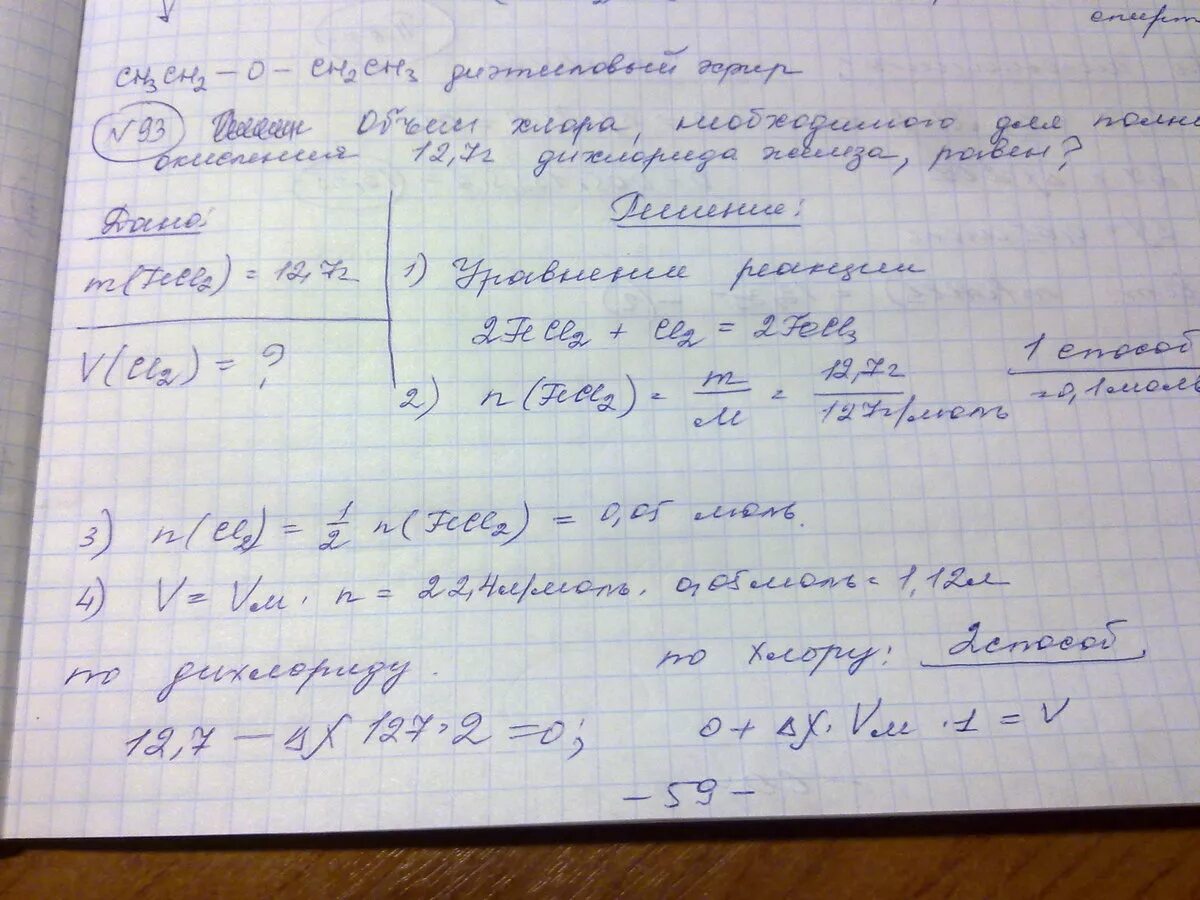 спирт
CH3CH2 – O – CH2CH3 диэтиловый эфир
№93 Объём хлора, необходимого для полно
окисления 12,7г дихлорида железа, равен?
Дано:
m(FeCl2) = 12,7г
V(Cl2) = ?
Решение:
1) Уравнение реакции
2FeCl2 + Cl2 = 2FeCl3
1 способ
2) n(FeCl2) = m/M = 12,7г/127г/моль = 0,1моль
3) n(Cl2) = 1/2 n(FeCl2) = 0,05 моль.
4) V = Vм · n = 22,4л/моль · 0,05моль = 1,12л
по дихлориду.
по хлору: 2 способ
12,7 – ΔX 127·2 = 0;
0 + ΔX · Vм · 1 = V
– 59 –